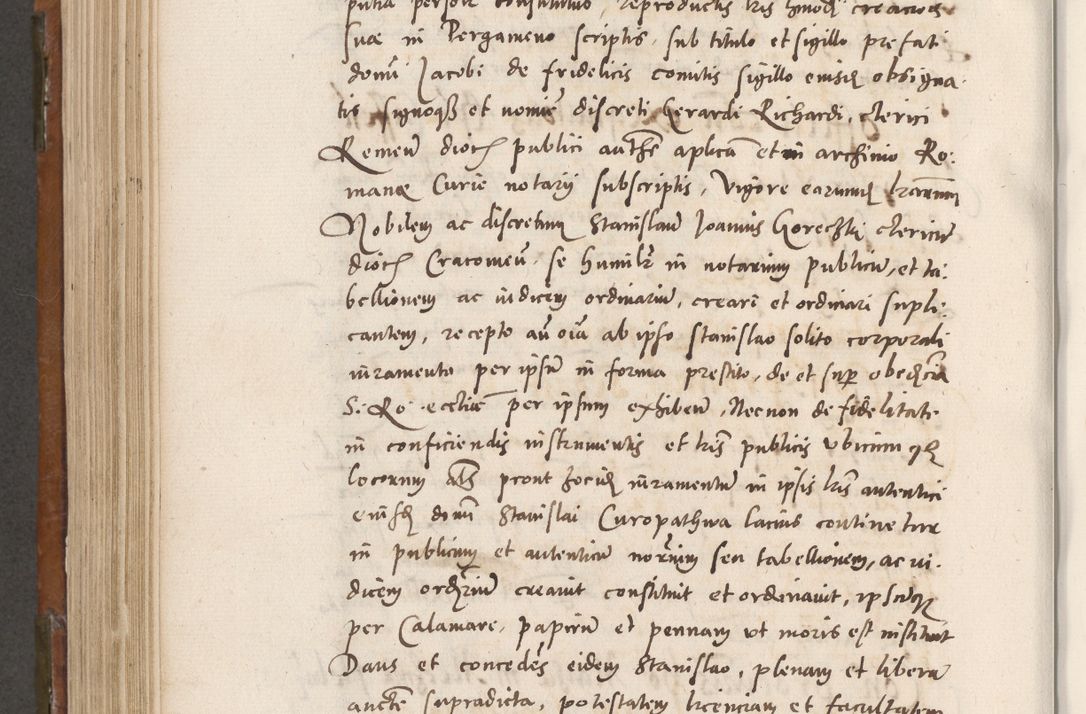 putia person constitutus, reproductis lris hmoi creacionis
suæ in Pergameno scriptis, sub titulo et sigillo prefati
domi Jacobi de fridelicis comitis sigillo eiusdẽ obsigna
tis signoqʒ et nomiẽ discreti Gerardi Richardi, clerici
Remeñ dioc publici authẽ aplicã et in archivio Ro:
manæ Curie notarij subscriptis, Vigore earumdẽ lrarum
Nobilem ac discretum Stanislaũ Joannis Gorechkj clericũ
dioc Cracovieñ. se humilr in notarium publicũ, et ta:
bellionem ac iudicem ordinariũ, creari et ordinari supli:
cantem, recepto añ oia ab ipso Stanislao solito corporali
iuramento per ipsũ in forma prestito, de et sup obedĩcia
S: Ro: ecclie per ipsum exhibeñ, Necnon de fidelitate
in conficiendis instrumentis et lris publicis ubicumqʒ
locorum als prout hocidẽ iuramentũ in ipsis lris autentici
eiusdẽ domi Stanislai Curopathwa lacius continetur
in publicum et autenticũ notrium seu tabellionem, ac iu:
dicem ordrium creavit constituit et ordinavit, ipsũqʒ
per Calamare, papirũ et pennam ut moris est instituit
Dans et concedẽs eidem Stanislao, plenam et liberã
aucte supradicta, potestatem licenciam et facultatem